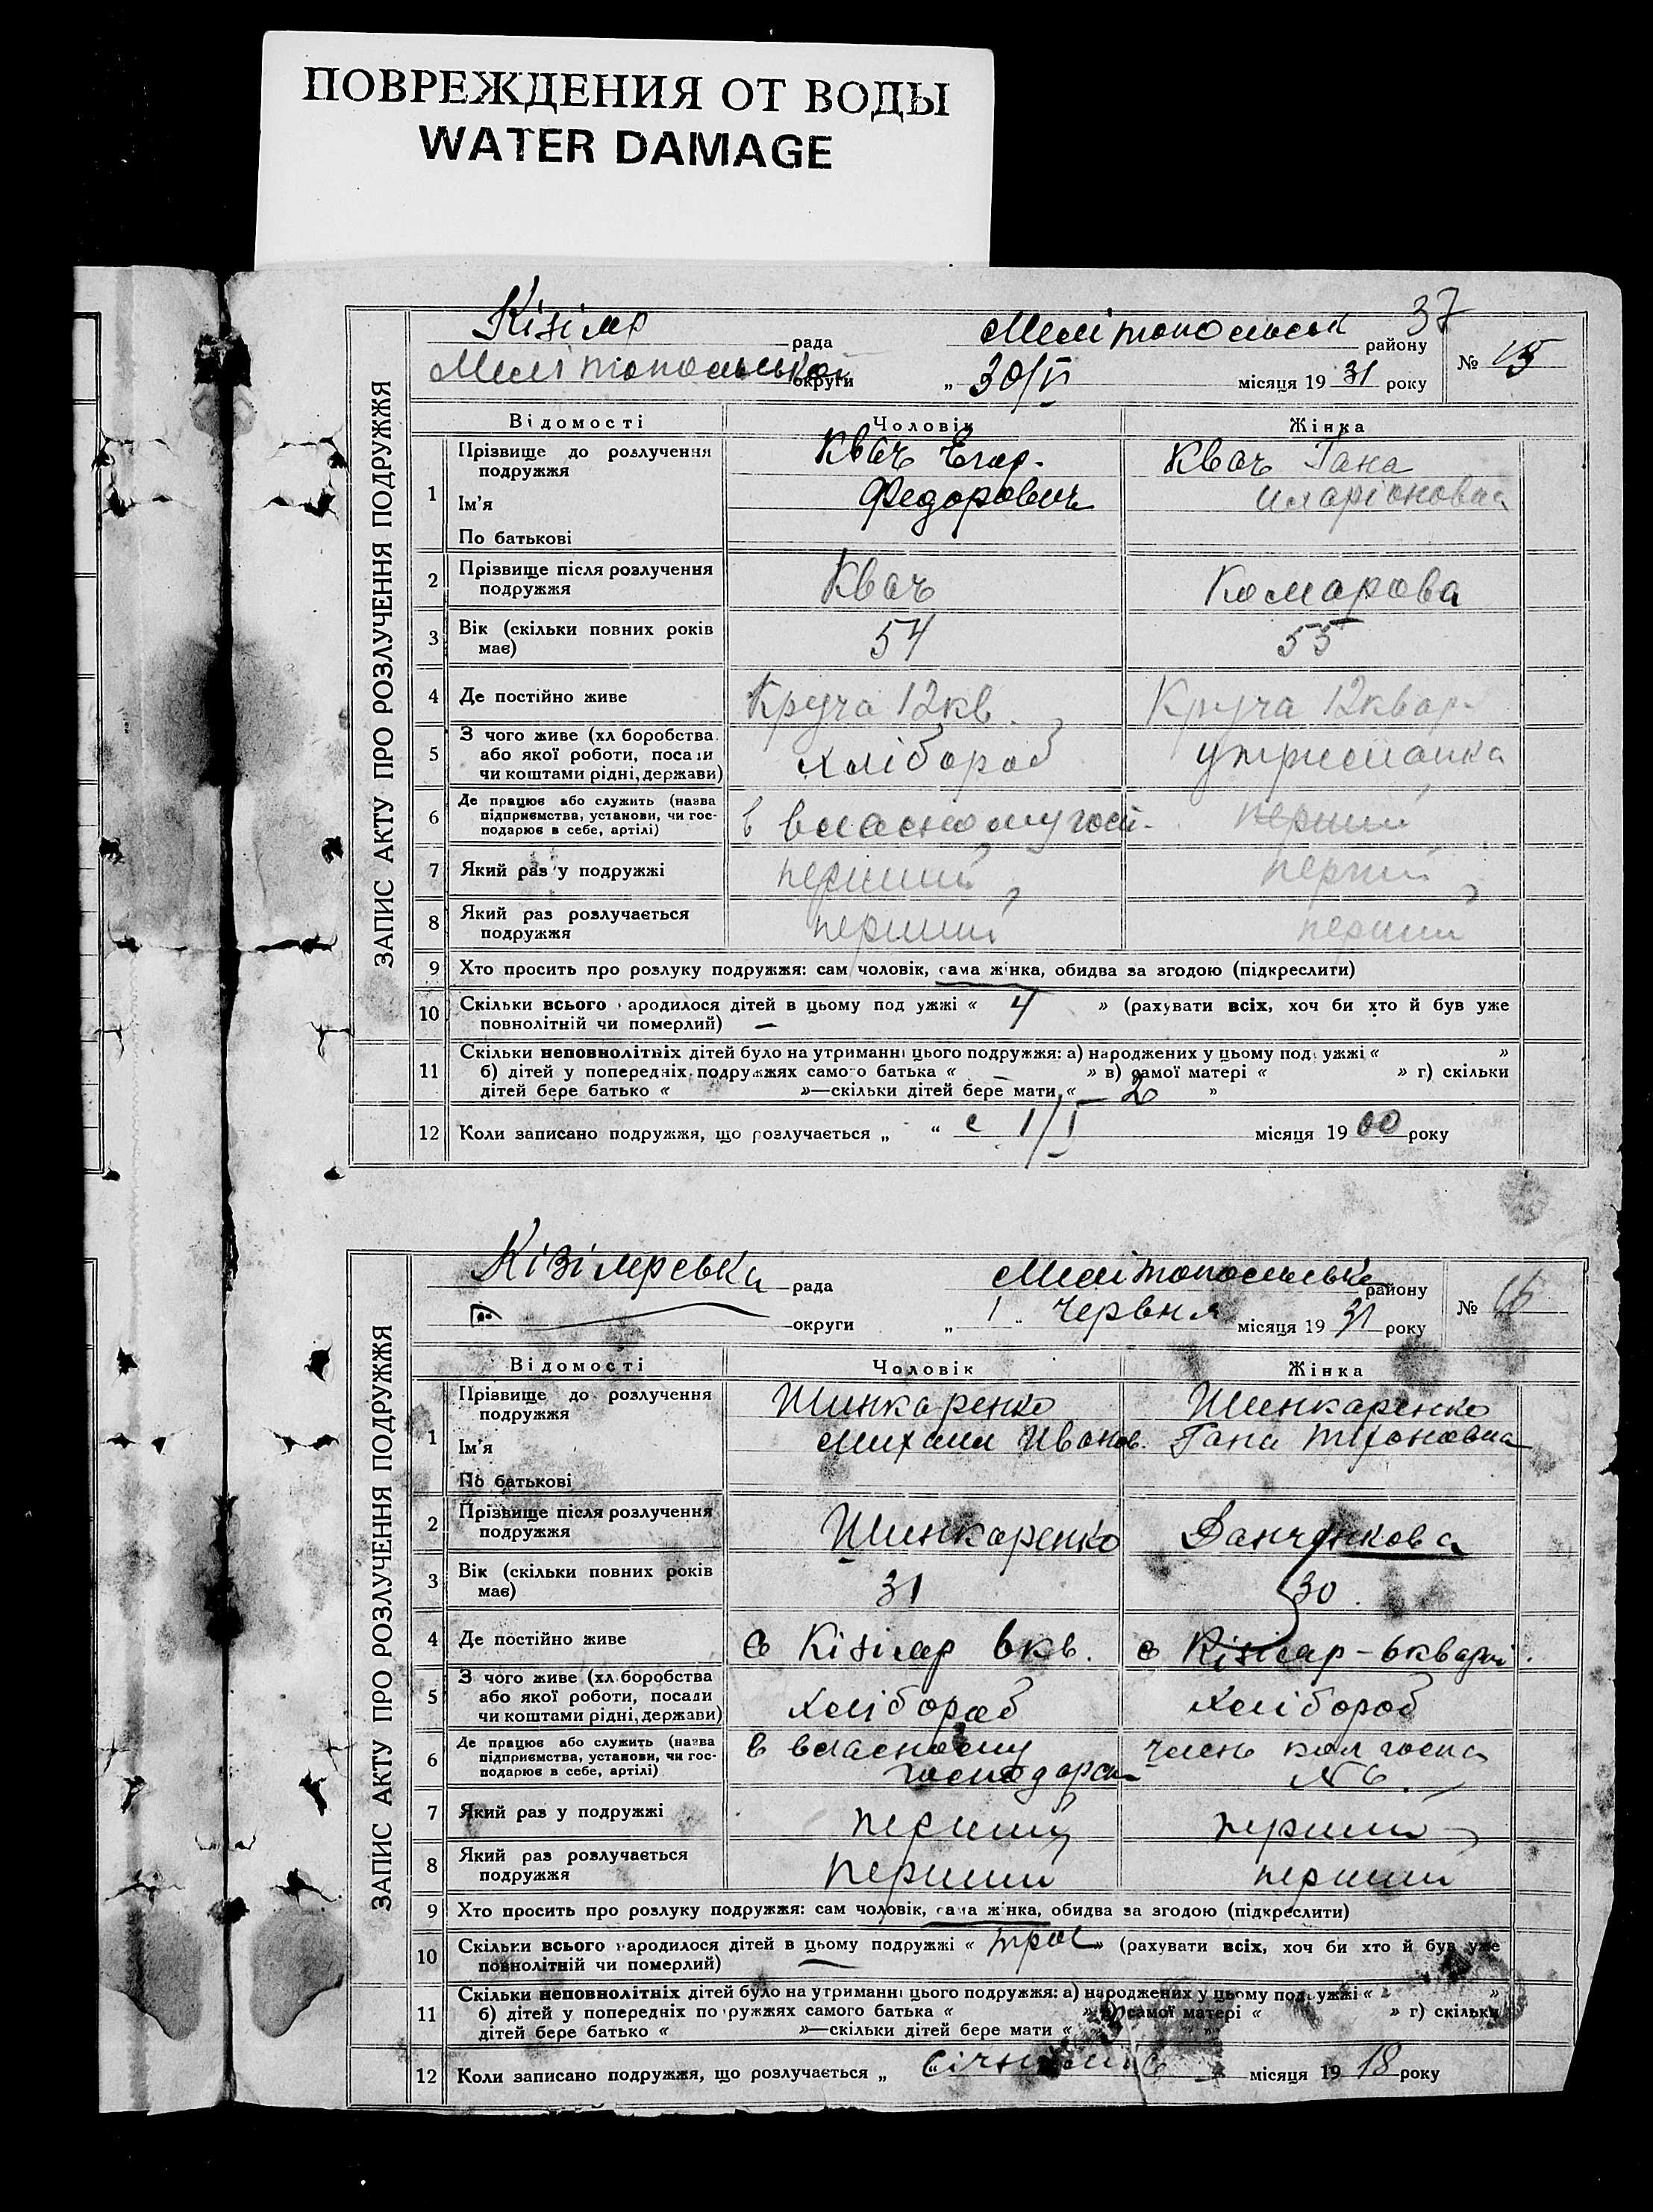 ПОВРЕЖДЕНИЯ ОТ ВОДЫ
WATER DAMAGE
37
Кізіляр рада Мелітопольськ району № 15
Мелітопольської округи „ 30/V місяця 19 31 року
ЗАПИС АКТУ ПРО РОЗЛУЧЕННЯ ПОДРУЖЖЯ
Відомості Чоловік Жінка
1 Прізвище до розлучення подружжя Квач Егор. Квач Гана
Ім'я Федорович Иларіоновна
По батькові
2 Прізвище після розлучення подружжя Квач Комарова
3 Вік (скільки повних років має) 54 55
4 Де постійно живе Круча 12 кв. Круча 12 квар.
5 З чого живе (хліборобства або якої роботи, посади чи коштами рідні, держави) хлібороб утриманка
6 Де працює або служить (назва підприємства, установи, чи господарює в себе, артілі) в власному госп. перший
7 Який раз у подружжі перший перший
8 Який раз розлучається подружжя перший перший
9 Хто просить про розлуку подружжя: сам чоловік, сама жінка, обидва за згодою (підкреслити)
10 Скільки всього народилося дітей в цьому подружжі « 4 » (рахувати всіх, хоч би хто й був уже
повнолітній чи померлий)
11 Скільки неповнолітніх дітей було на утриманні цього подружжя: а) народжених у цьому подружжі « »
б) дітей у попередніх подружжях самого батька « » в) самої матері « » г) скільки
дітей бере батько « »—скільки дітей бере мати « 2 »
12 Коли записано подружжя, що розлучається „ “ с 1/I місяця 19 00 року
Кізілярська рада Мелітопольськ району № 16
округи „ 1 “ Червня місяця 19 31 року
ЗАПИС АКТУ ПРО РОЗЛУЧЕННЯ ПОДРУЖЖЯ
Відомості Чоловік Жінка
1 Прізвище до розлучення подружжя Шинкаренко Шинкаренко
Ім'я Михаил Иванов. Гана Тіхоновна
По батькові
2 Прізвище після розлучення подружжя Шинкаренко Данченкова
3 Вік (скільки повних років має) 31 30
4 Де постійно живе с Кізіляр 6 кв. с Кізіляр – 6 кварт.
5 З чого живе (хліборобства або якої роботи, посади чи коштами рідні, держави) хлібороб хлібороб
6 Де працює або служить (назва підприємства, установи, чи господарює в себе, артілі) в власному господарс. член колгоспа № 6.
7 Який раз у подружжі перший перший
8 Який раз розлучається подружжя перший перший
9 Хто просить про розлуку подружжя: сам чоловік, сама жінка, обидва за згодою (підкреслити)
10 Скільки всього народилося дітей в цьому подружжі « трое » (рахувати всіх, хоч би хто й був уже
повнолітній чи померлий)
11 Скільки неповнолітніх дітей було на утриманні цього подружжя: а) народжених у цьому подружжі « »
б) дітей у попередніх подружжях самого батька « » в) самої матері « » г) скільки
дітей бере батько « »—скільки дітей бере мати «
12 Коли записано подружжя, що розлучається „ місяця 19 18 року